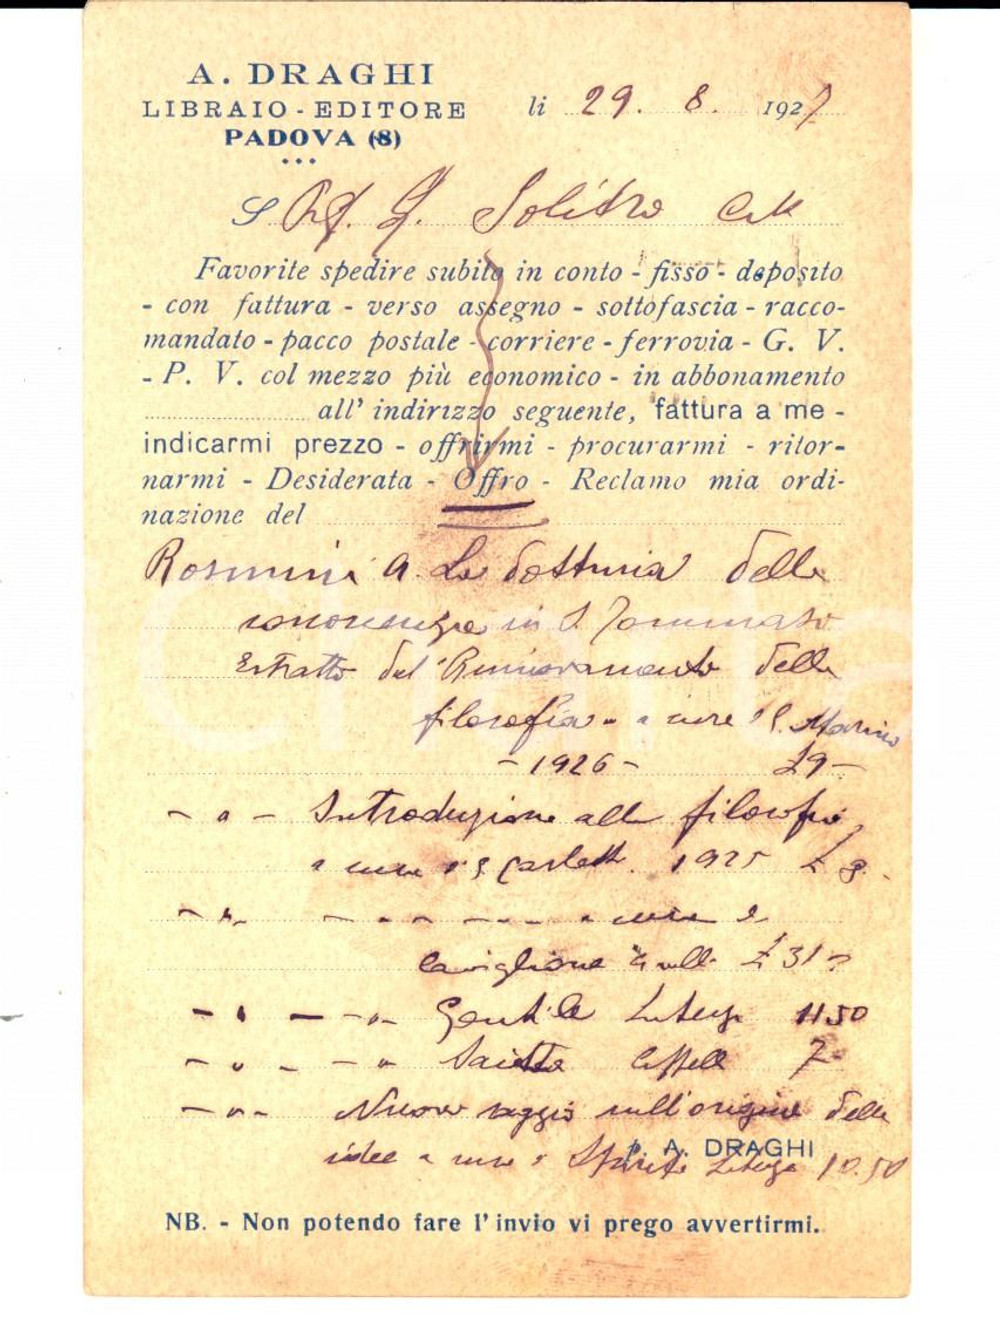 A. DRAGHI
LIBRAIO - EDITORE
PADOVA (8)
li 29. 8. 1927
S. Prof. G. Solitro
Favorite spedire subito in conto - fisso - deposito
- con fattura - verso assegno - sottofascia - racco-
mandato - pacco postale - corriere - ferrovia - G. V.
- P. V. col mezzo più economico - in abbonamento
all' indirizzo seguente, fattura a me -
indicarmi prezzo - offrirmi - procurarmi - ritor-
narmi - Desiderata - Offro - Reclamo mia ordi-
nazione del
Rosmini A. La dottrina della
conoscenza in S. Tommaso
Estratto dal Rinnovamento della
filosofia - a cura
- 1926 - £ 9 -
- " - Introduzione alla filosofia
a cura di 1925 £ 8.
- " - a cura di
Caviglione £ 31
- " - - " - Gentile Laterza 11 50
- " - - "
- " - Nuovo saggio sull'origine delle
idee a cura Laterza 10.50
p. A. DRAGHI
NB. - Non potendo fare l'invio vi prego avvertirmi.